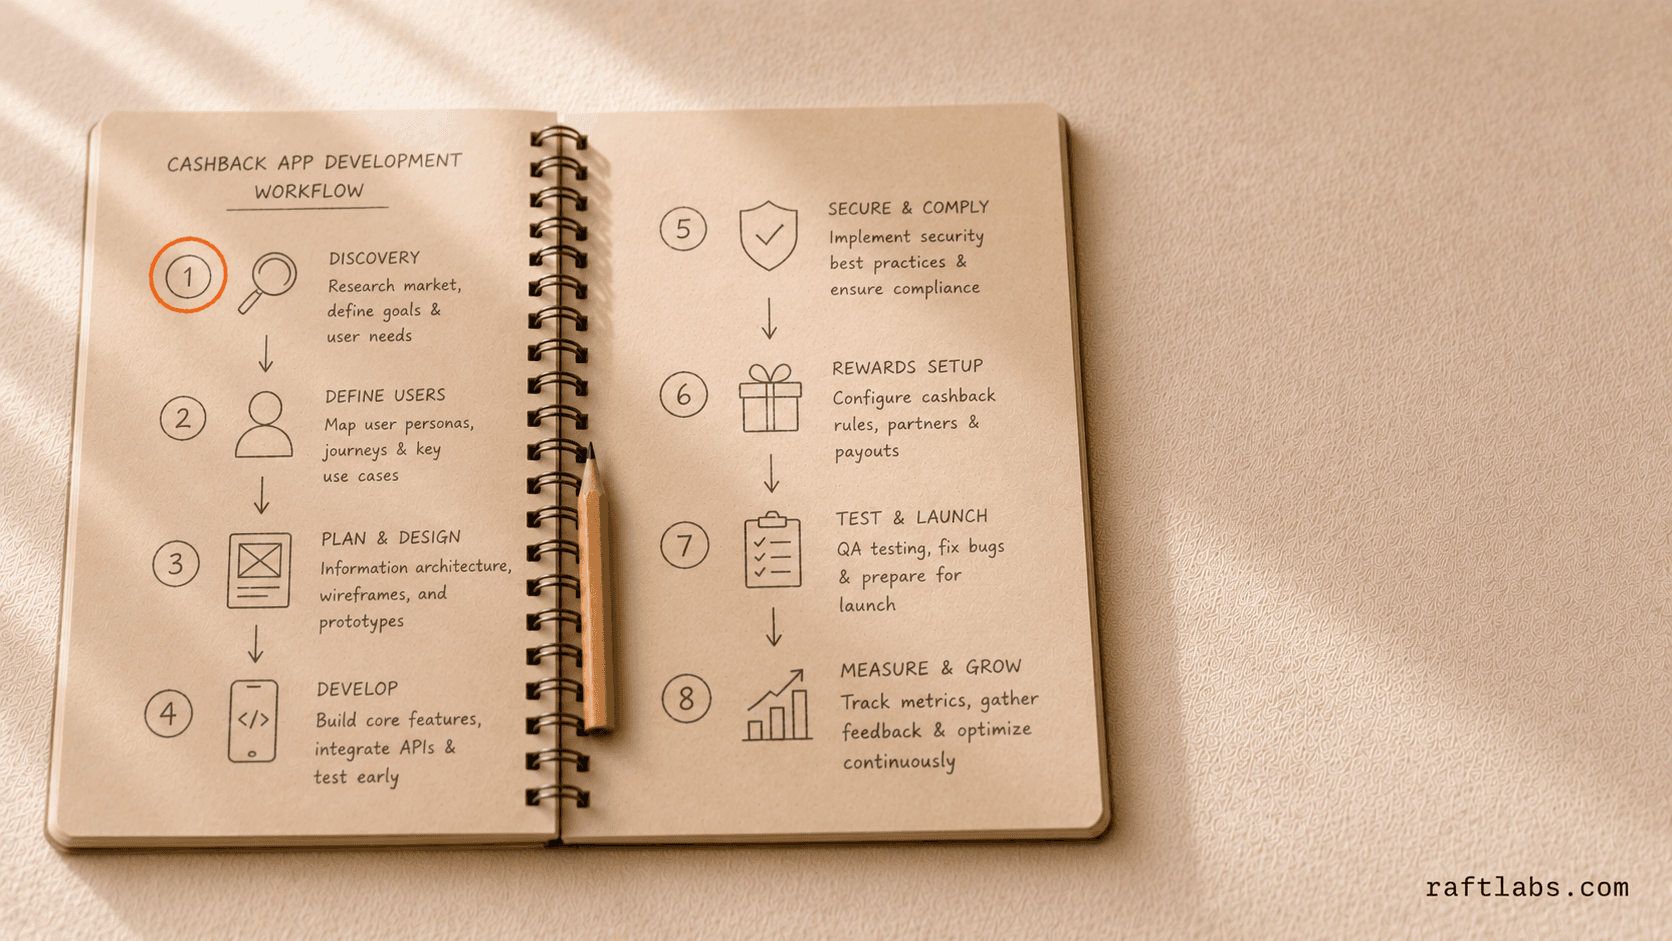 CASHBACK APP DEVELOPMENT
WORKFLOW
1
DISCOVERY
Research market,
define goals &
user needs
2
DEFINE USERS
Map user personas,
journeys & key
use cases
3
PLAN & DESIGN
Information architecture,
wireframes, and
prototypes
4
</>
DEVELOP
Build core features,
integrate APIs &
test early
5
SECURE & COMPLY
Implement security
best practices &
ensure compliance
6
REWARDS SETUP
Configure cashback
rules, partners &
payouts
7
TEST & LAUNCH
QA testing, fix bugs
& prepare for
launch
8
MEASURE & GROW
Track metrics, gather
feedback & optimize
continuously
raftlabs.com